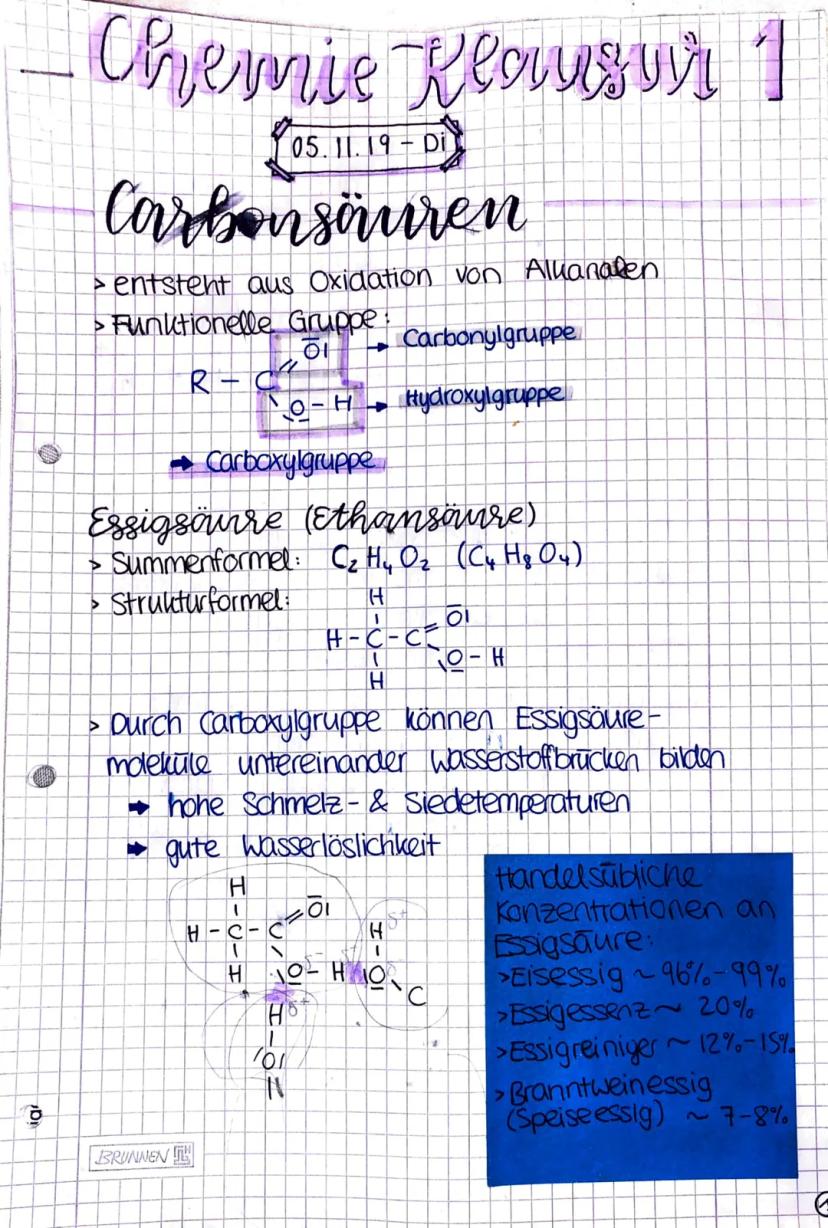 Chemie-Klausur 1
05.11.19 - Di
Carbonsäuren
> entsteht aus Oxidation von Alkanalen
> Funktionelle Gruppe:
O → Carbonylgruppe
R - C
O - H → Hydroxylgruppe
→ Carboxylgruppe
Essigsäure (Ethansäure)
> Summenformel: C₂H₄O₂ (C₄H₈O₄)
> Strukturformel:
H
O
H - C - C
O - H
H
> Durch Carboxylgruppe können Essigsäure-
moleküle untereinander Wasserstoffbrücken bilden
→ hohe Schmelz- & Siedetemperaturen
→ gute Wasserlöslichkeit
H
O
H - C - C
H δ+
H
O - H
O
C
H δ+
O
Handelsübliche
Konzentrationen an
Essigsäure:
> Eisessig ~ 96%-99%
> Essigessenz ~ 20%
> Essigreiniger ~ 12%-15%
> Branntweinessig
(Speiseessig) ~ 7-8%
BRUNNEN